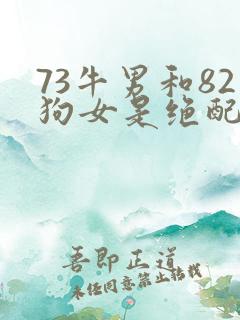 73牛男和82
狗女是绝配
吾即正道
未经同意禁止转载